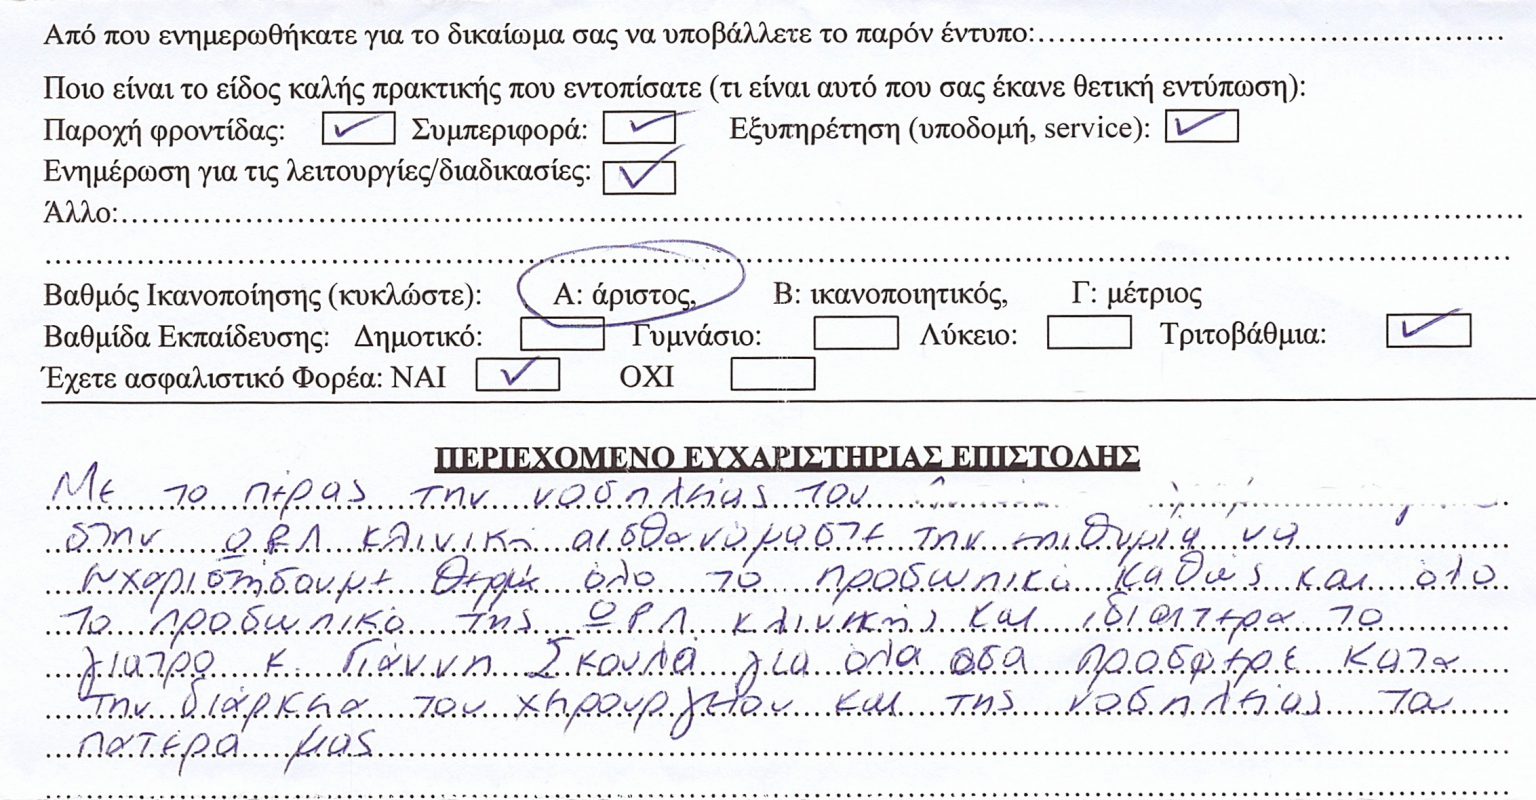 Από που ενημερωθήκατε για το δικαίωμα σας να υποβάλλετε το παρόν έντυπο:
Ποιο είναι το είδος καλής πρακτικής που εντοπίσατε (τι είναι αυτό που σας έκανε θετική εντύπωση):
Παροχή φροντίδας: ✓ Συμπεριφορά: ✓ Εξυπηρέτηση (υποδομή, service): ✓
Ενημέρωση για τις λειτουργίες/διαδικασίες: ✓
Άλλο:
Βαθμός Ικανοποίησης (κυκλώστε): Α: άριστος, Β: ικανοποιητικός, Γ: μέτριος
Βαθμίδα Εκπαίδευσης: Δημοτικό: Γυμνάσιο: Λύκειο: Τριτοβάθμια: ✓
Έχετε ασφαλιστικό Φορέα: ΝΑΙ ✓ ΟΧΙ
ΠΕΡΙΕΧΟΜΕΝΟ ΕΥΧΑΡΙΣΤΗΡΙΑΣ ΕΠΙΣΤΟΛΗΣ
Με το πέρας την νοσηλείας του
στην ΩΡΛ κλινική αισθανόμαστε την επιθυμία να
ευχαριστήσουμε θερμά όλο το προσωπικό καθώς και όλο
το προσωπικό της ΩΡΛ κλινικής και ιδιαίτερα το
γιατρό κ. Γιάννη Σκουλά για όλα όσα πρόσφερε κατα
την διάρκεια του χειρουργείου και της νοσηλείας του
πατέρα μας